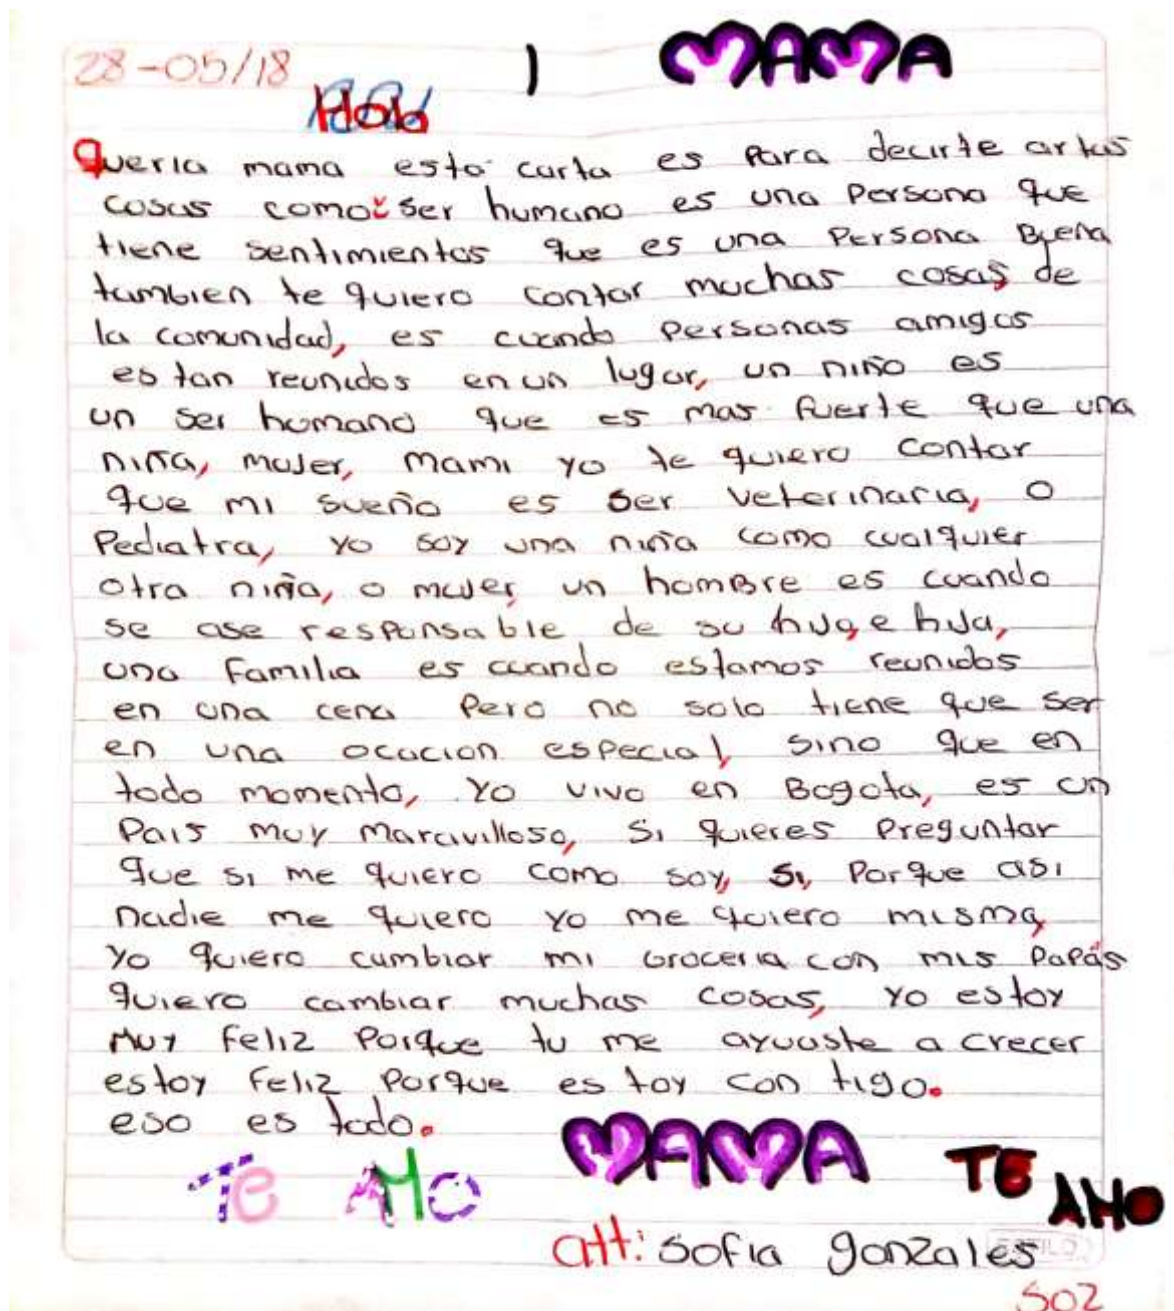 28-05/18 1 MAMA
Hola
Queria mama esta carta es para decirte artas
cosas como ser humano es una persona que
tiene sentimientos que es una persona Buena
tambien te quiero contar muchas cosas de
la comunidad, es cuando personas amigos
es tan reunidos en un lugar, un niño es
un ser humano que es mas fuerte que una
niña, mujer, mami yo te quiero contar
que mi sueño es ser veterinaria, o
Pediatra, yo soy una niña como cualquier
otra niña, o mujer, un hombre es cuando
se ase responsable de su hijo, e hija,
una familia es cuando estamos reunidos
en una cena pero no solo tiene que ser
en una ocacion especial, sino que en
todo momento, yo vivo en Bogota, es un
Pais muy maravilloso, si quieres preguntar
que si me quiero como soy, si, porque asi
nadie me quiero yo me quiero misma,
yo quiero cambiar mi groceria con mis papás
quiero cambiar muchas cosas, yo estoy
muy feliz porque tu me ayuaste a crecer
estoy feliz porque es toy con tigo.
eso es todo.
TE AMO MAMA TE AMO
att: Sofia gonzales
502